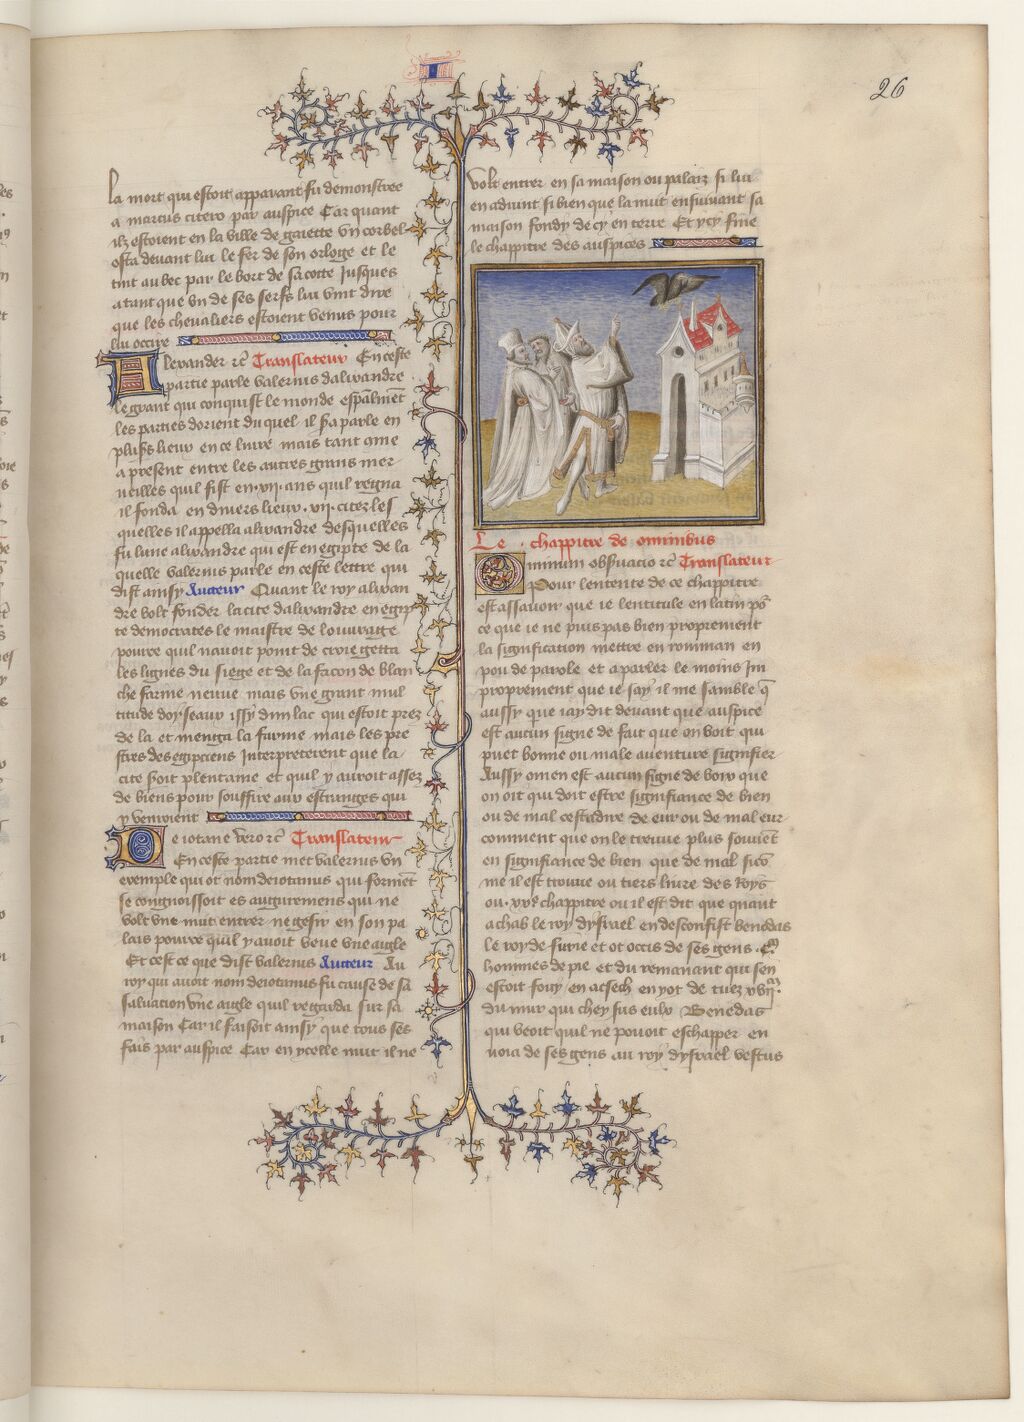 26
La mort qui estoit apparant fu demonstree
a marcus cicero par auspice Car quant
ilz estoient en la ville de gaiette vn corbel
osta deuant lui le fer de son orloge et le
tint au bec par le bort de sa cotte Jusques
a tant que vn de ses serfs lui vint dire
que les cheualiers estoient venus pour
lui occire
Alexander rc Translateur En ceste
partie parle valerius dalixandre
le grant qui conquist le monde espalment
les parties dorient du quel il sa parle en
plusrs lieux en ce liure mais tant ame
a present entre les autres grans mer
ueilles quil fist en .xii. ans quil regna
il fonda en diuers lieux .xii. citez les
quelles il appella alixandre desquelles
fu lune alixandre qui est en egipte de la
quelle valerius parle en ceste lettre qui
dist ainsy Aucteur Quant le roy alixan
dre volt fonder la cite dalixandre en egip
te democrates le maistre de louurage
pource quil nauoit point de croie getta
les lignes du siege et de la facon de blan
che farine neuue mais vne grant mul
titude doyseaux issy dun lac qui estoit prez
de la et menga la farine mais les pre
stres des egipciens Interpreterent que la
cite soit plentaine et quil y auroit assez
de biens pour souffire aux estranges qui
y venroient
Deiotare vero rc Translateur
En ceste partie met valerius vn
exemple qui ot nom deiotarus qui forment
se congnoissoit es auguremens qui ne
volt vne nuit entrer ne gesir en son pa
lais pource quil y auoit veue vne aigle
Et cest ce que dist valerius Aucteur Au
roy qui auoit nom deiotarus fu cause de sa
saluation vne aigle quil regarda sur sa
maison Car il faisoit ainsy que tous ses
fais par auspice Car en ycelle nuit il ne
volt entrer en sa maison ou palaix si lui
en aduint si bien que la nuit ensuiuant sa
maison fondy de cy en terre Et ycy fine
le chappitre des auspices
Le chappitre de ominibus
Ominum obseruacio rc Translateur
Pour lentente de ce chappitre
est assauoir que ie lentitule en latin po
ce que ie ne puis pas bien proprement
la signification mettre en romman en
pou de parole et a parler le moins Im
proprement que ie say il me samble q
aussy que iay dit deuant que auspice
est aucun signe de fait que on voit qui
puet bonne ou male auenture signifier
Aussy omen est aucun signe de voix que
on oit qui doit estre signifiance de bien
ou de mal cestadire de eur ou de mal eur
comment que on le treuue plus souuent
en signifiance de bien que de mal sico
me il est trouue ou tiers liure des Roys
ou .xxe. chappitre ou il est dit que quant
achab le roy dysrael en desconfist benedas
le roy de surie et ot occis de ses gens .Cm
hommes de pie et du remanant qui sen
estoit fouy en afsech en yot de tuez xviim.
du mur qui chey sus eulx Benedas
qui veoit quil ne pouoit eschapper en
uoia de ses gens au roy dysrael vestus